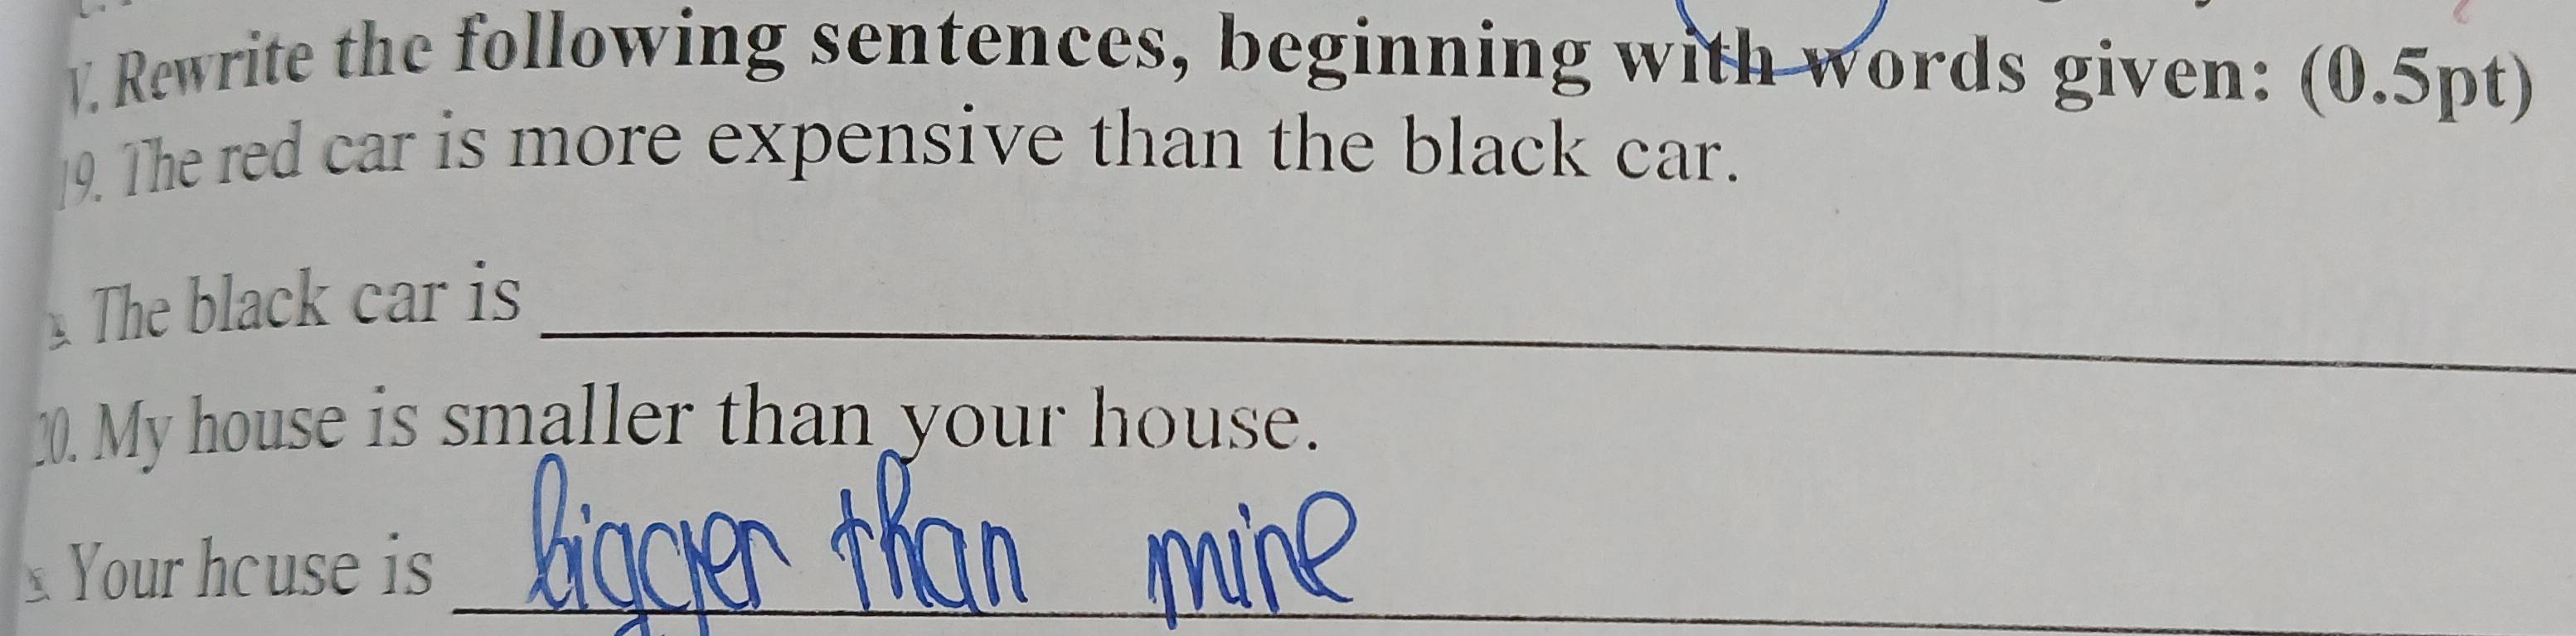 V. Rewrite the following sentences, beginning with words given: (0.5pt)
19. The red car is more expensive than the black car.
The black car is
20. My house is smaller than your house.
Your house is bigger than mine